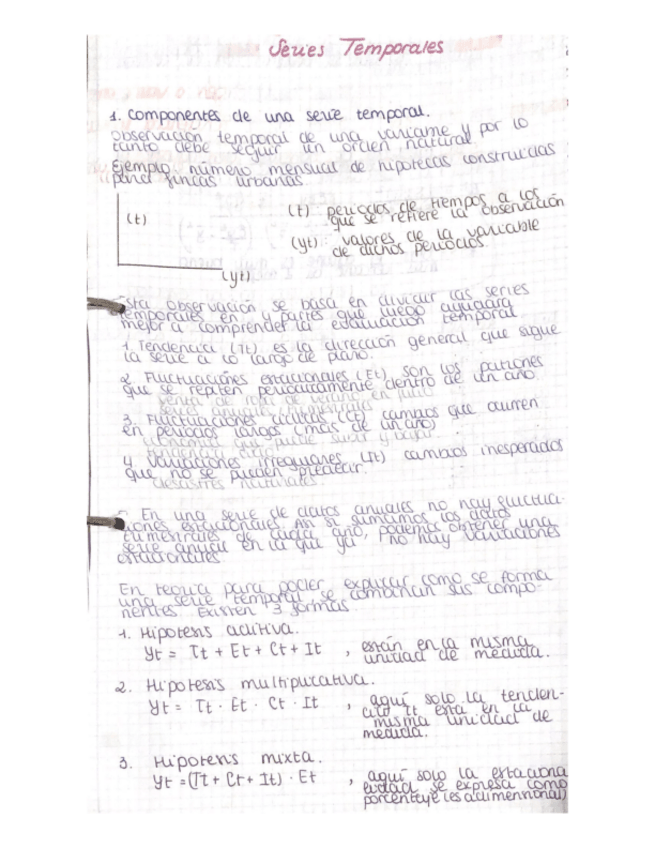 Series Temporales
1. Componentes de una serie temporal.
Observación temporal de una variable y por lo
tanto debe seguir un orden natural.
Ejemplo número mensual de hipotecas construidas
para fincas urbanas
(t)
(t) periodos de tiempos a los
que se refiere la observación
(yt) valores de la variable
de dichos periodos.
(yt)
Esta observación se basa en dividir las series
temporales en 4 partes que luego ayudara
mejor a comprender la evaluación temporal
1. Tendencia (Tt) es la dirección general que sigue
la serie a lo largo de plano.
2. Fluctuaciones estacionales (Et) son los patrones
que se repiten periodicamente dentro de un año
venta de ropa de verano en julio
3. Fluctuaciones cíclicas (Ct) cambios que ocurren
en periodos largos (más de un año)
economías que puede subir y bajar
4. Variaciones irregulares (It) cambios inesperados
que no se pueden predecir.
desastres naturales.
- En una serie de datos anuales no hay fluctua-
ciones estacionales. Ahí si sumamos los datos
trimestrales de cada año, podemos obtener una
serie anual en la que ya no hay variaciones
estacionales.
En teoria para poder explicar como se forma
una serie temporal se combinan sus compo-
nentes. Existen 3 formas.
1. Hipotesis aditiva.
Yt = Tt + Et + Ct + It , están en la misma
unidad de medida.
2. Hipotesis multiplicativa.
Yt = Tt · Et · Ct · It , aquí solo la tenden-
cia Tt esta en la
misma unidad de
medida.
3. Hipotesis mixta.
Yt = (Tt + Ct + It) · Et , aquí solo la estaciona
lidad se expresa como
porcentaje (es adimensional)